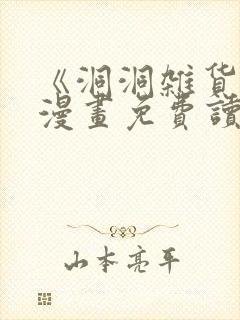 《洞洞雜貨
漫畫免費讀
山本亮平